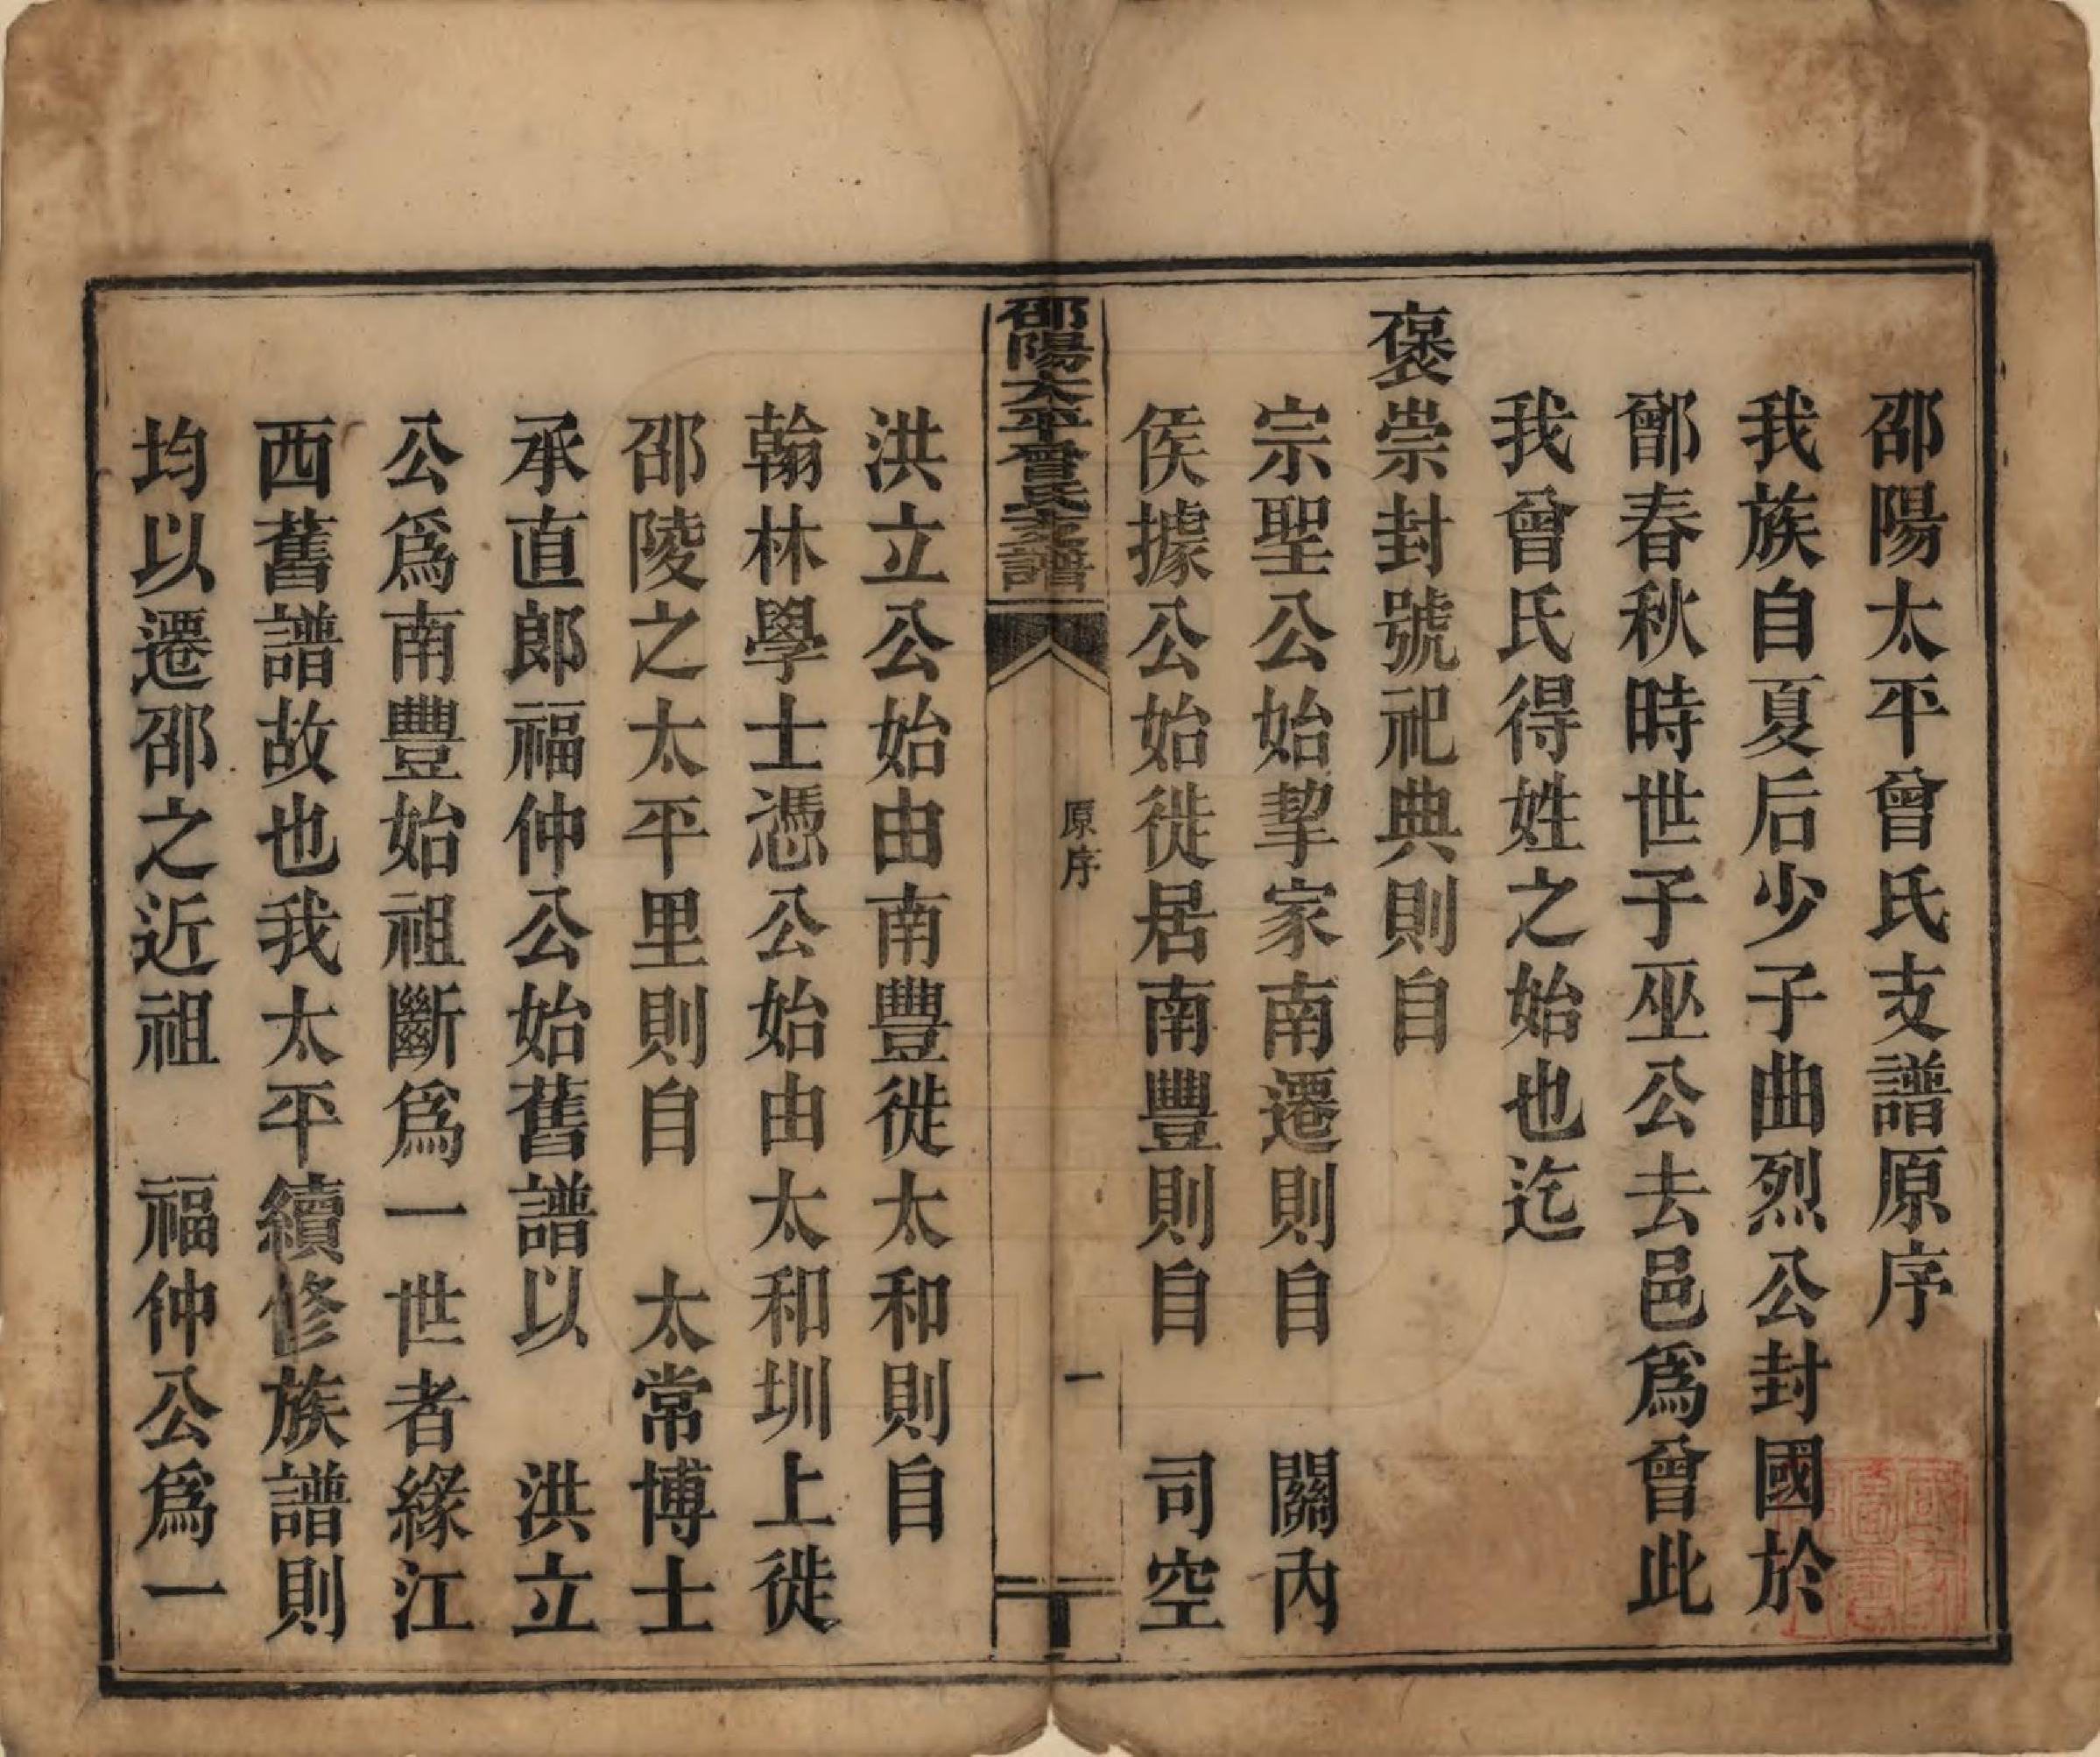 邵陽太平曾氏支譜原序
我族自夏后少子曲烈公封國於
鄫春秋時世子巫公去邑爲曾此
我曾氏得姓之始也迄
褒崇封號祀典則自
宗聖公始挈家南遷則自　關內
侯據公始徙居南豐則自　司空
邵陽太平曾氏支譜
原序
一
洪立公始由南豐徙太和則自
翰林學士憑公始由太和圳上徙
邵陵之太平里則自　太常博士
承直郎福仲公始舊譜以　洪立
公爲南豐始祖斷爲一世者緣江
西舊譜故也我太平續修族譜則
均以遷邵之近祖　福仲公爲一